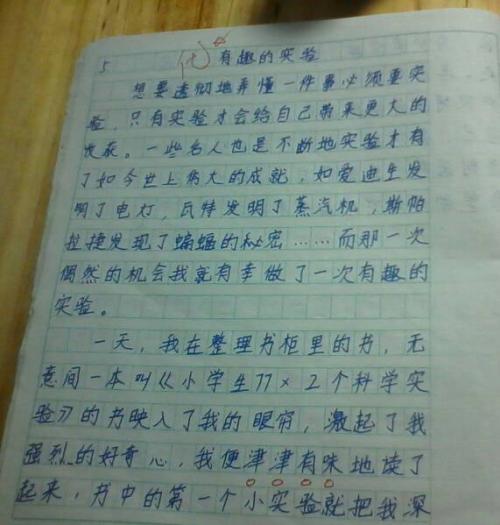 5 优 有趣的实验
想要透彻地弄懂一件事必须要实
验，只有实验才会给自己带来更大的
收获。一些名人也是不断地实验才有
了如今世上伟大的成就，如爱迪生发
明了电灯，瓦特发明了蒸汽机，斯帕
拉捷发现了蝙蝠的秘密……而那一次
偶然的机会我就有幸做了一次有趣的
实验。
一天，我在整理书柜里的书，无
意间一本叫《小学生77×2个科学实
验》的书映入了我的眼帘，激起了我
强烈的好奇心，我便津津有味地读了
起来，书中的第一个小实验就把我深